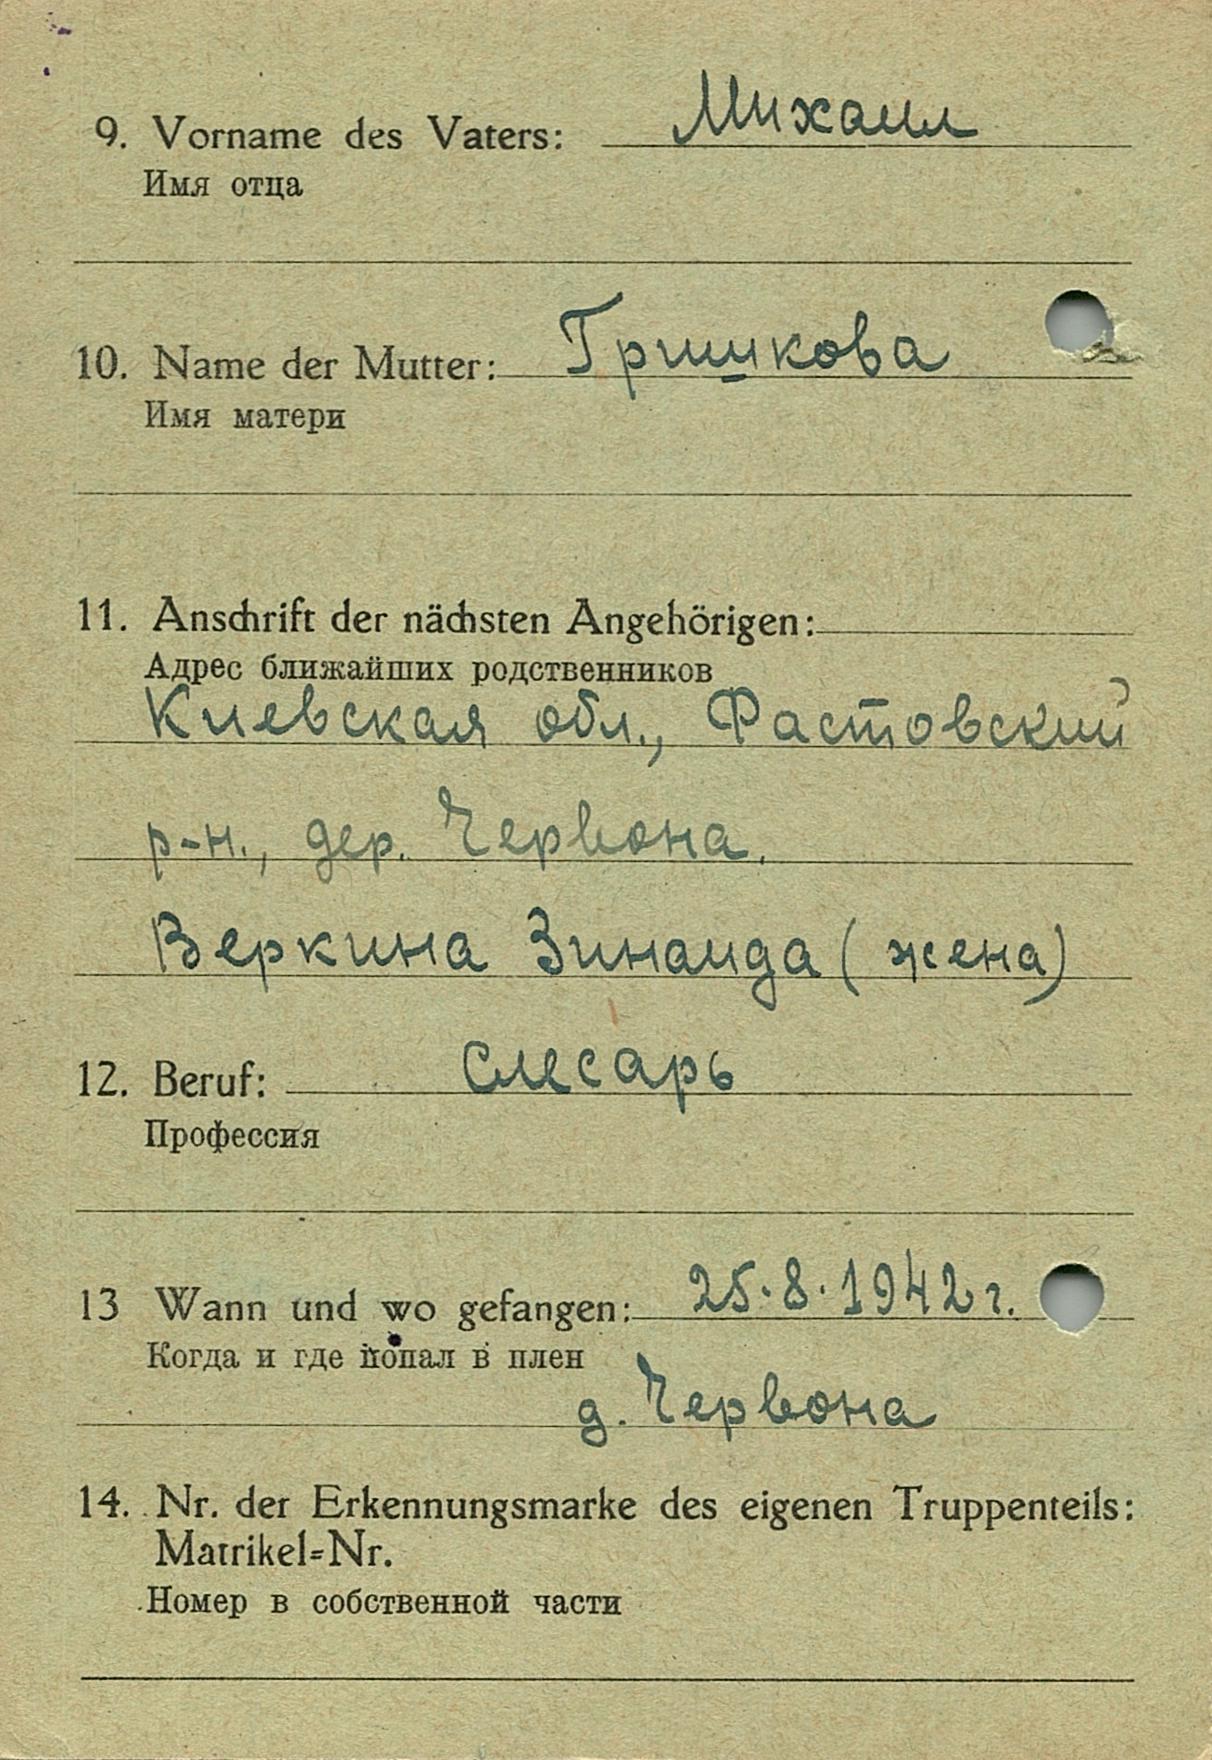 9. Vorname des Vaters: Михаил
Имя отца
10. Name der Mutter: Гришкова
Имя матери
11. Anschrift der nächsten Angehörigen:
Адрес ближайших родственников
Киевская обл., Фастовский
р-н., дер. Червона.
Веркина Зинаида (жена)
12. Beruf: Слесарь
Профессия
13 Wann und wo gefangen: 25.8.1942 г.
Когда и где попал в плен
д. Червона
14. Nr. der Erkennungsmarke des eigenen Truppenteils:
Matrikel=Nr.
Номер в собственной части